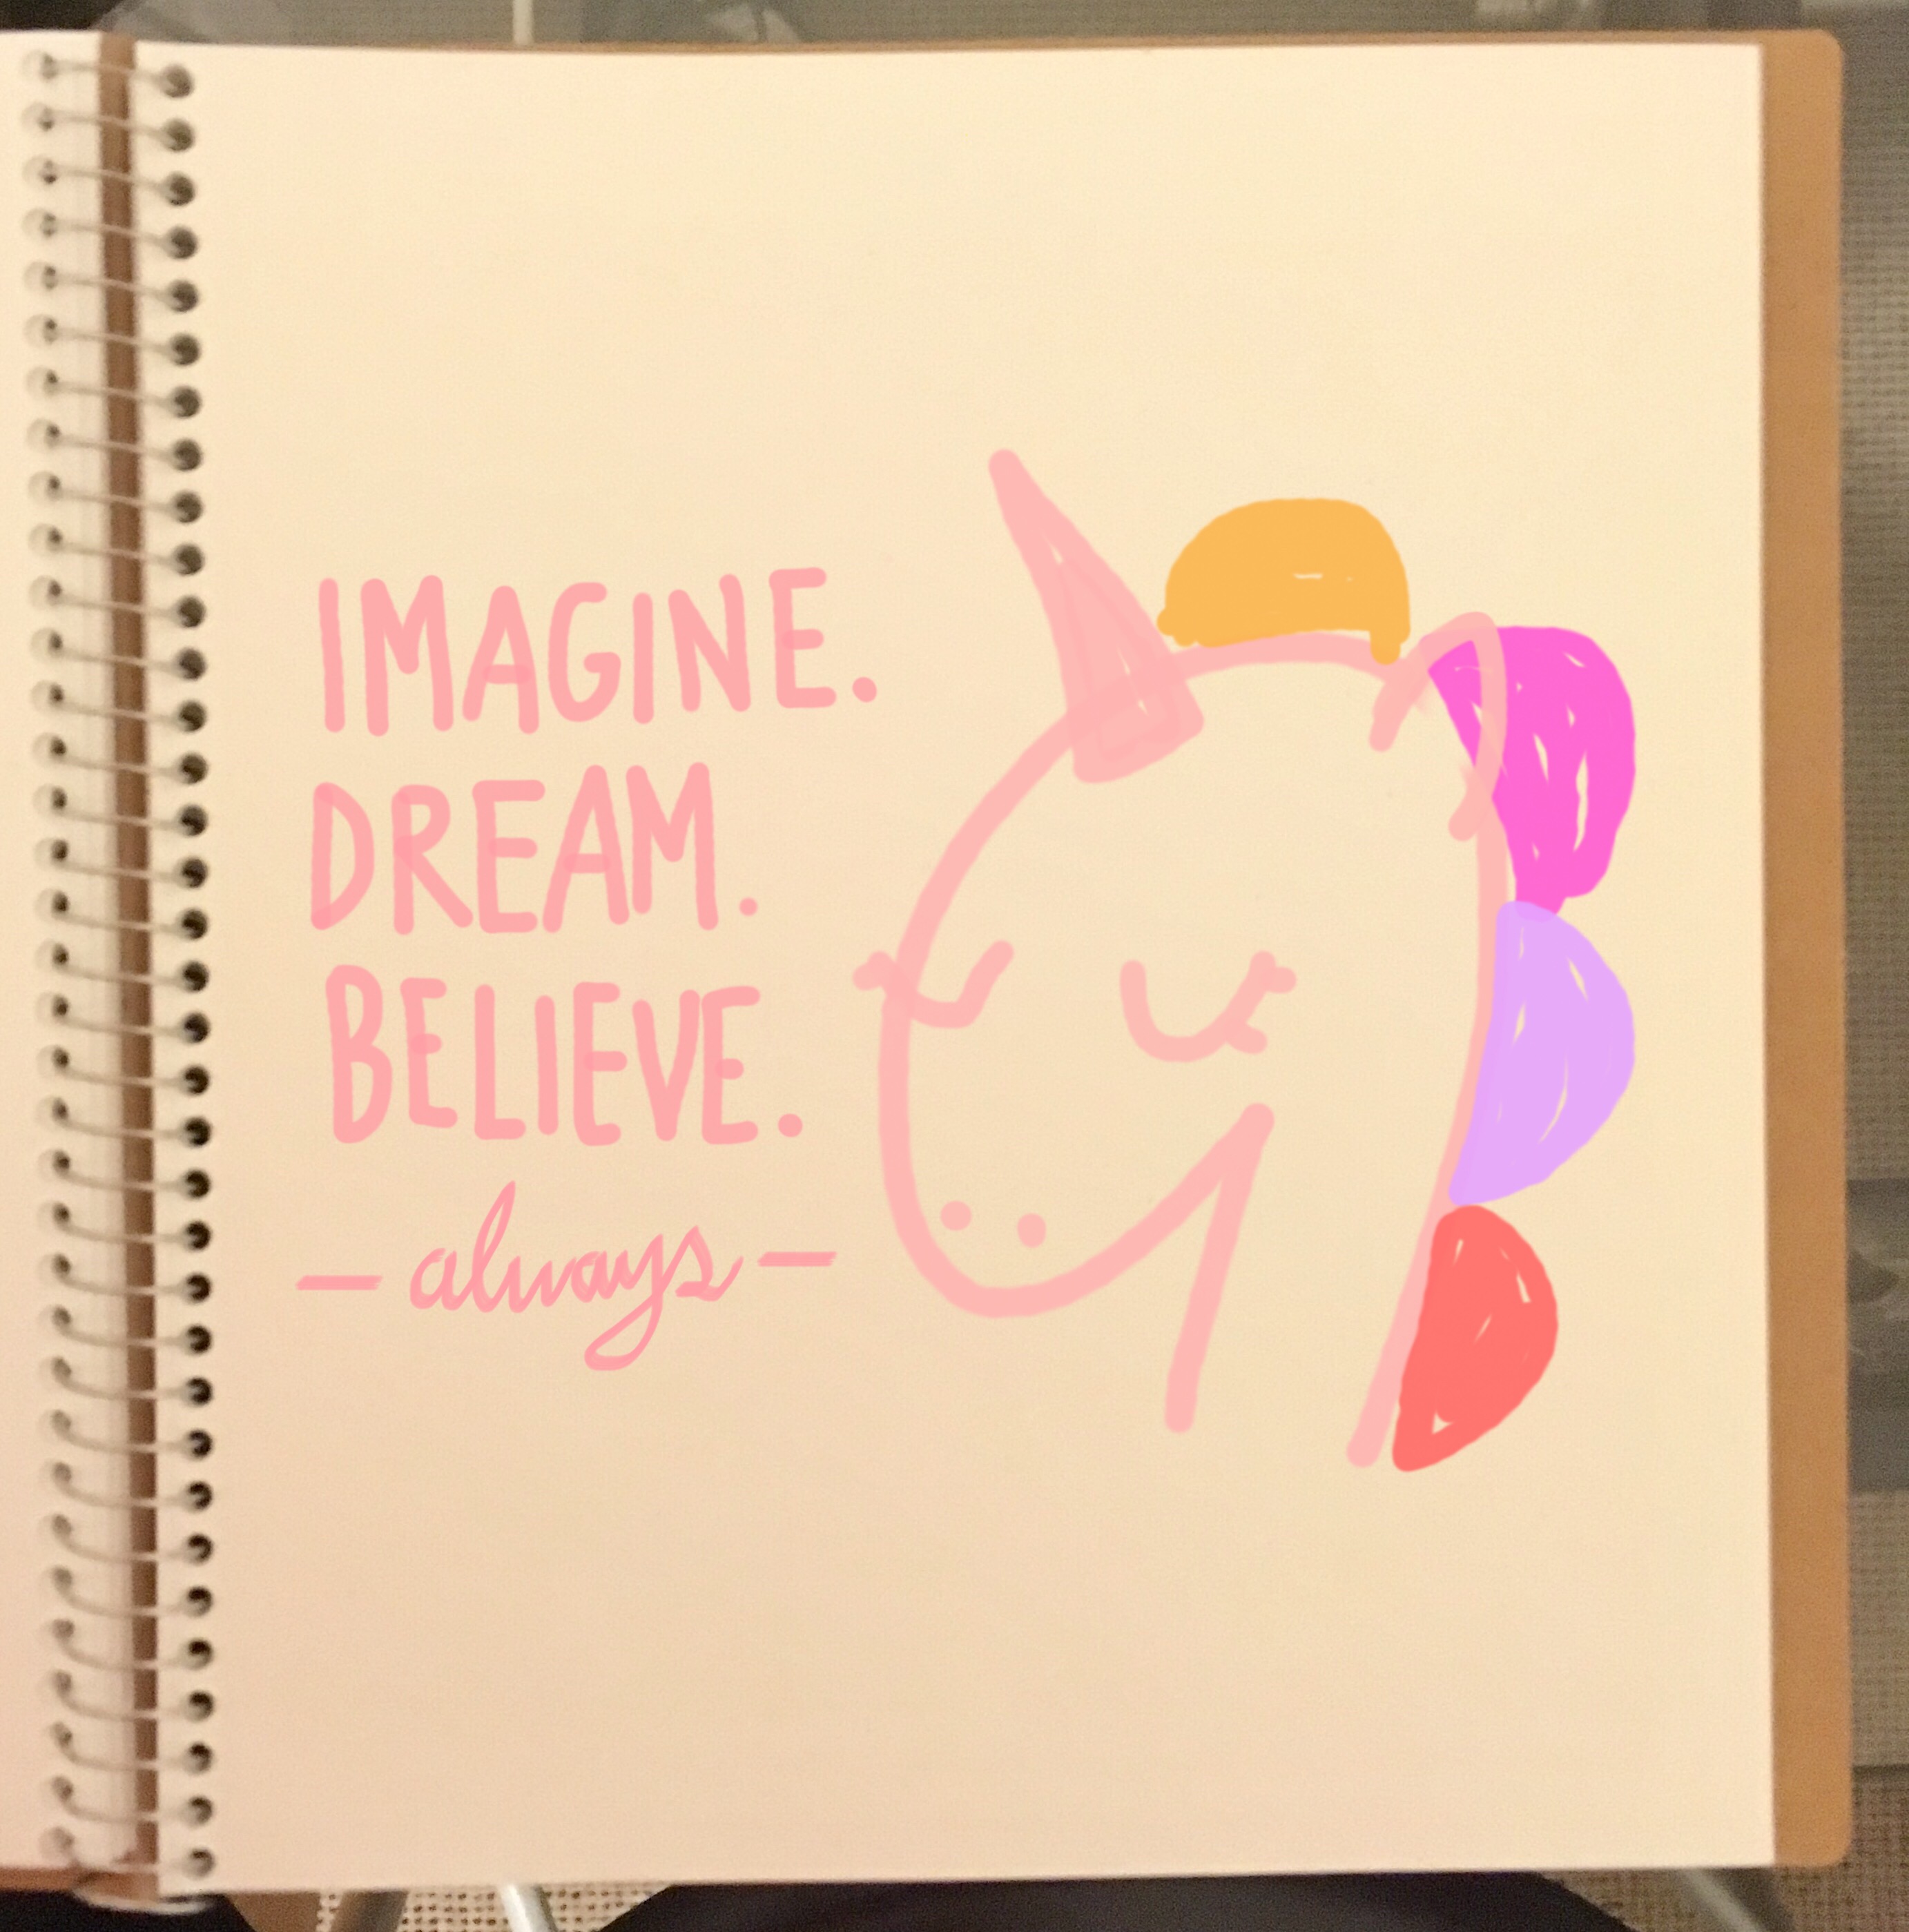 IMAGINE.
DREAM.
BELIEVE.
— always —